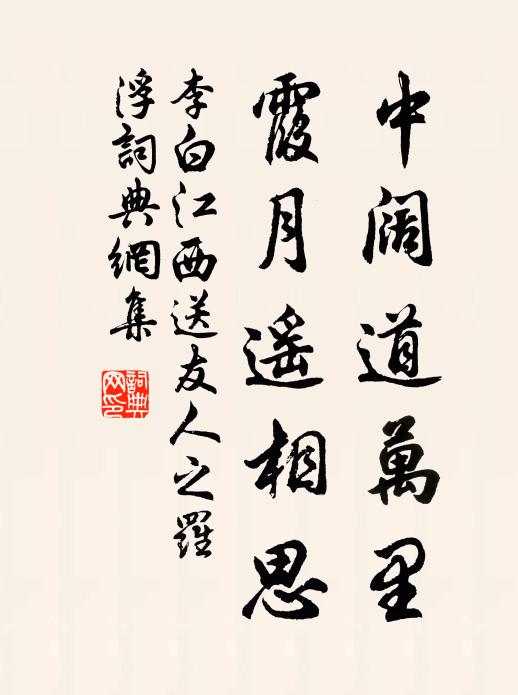 中阔道萬里
霞月遥相思
李白江西送友人之羅
浮詞典網集
詞典
网印